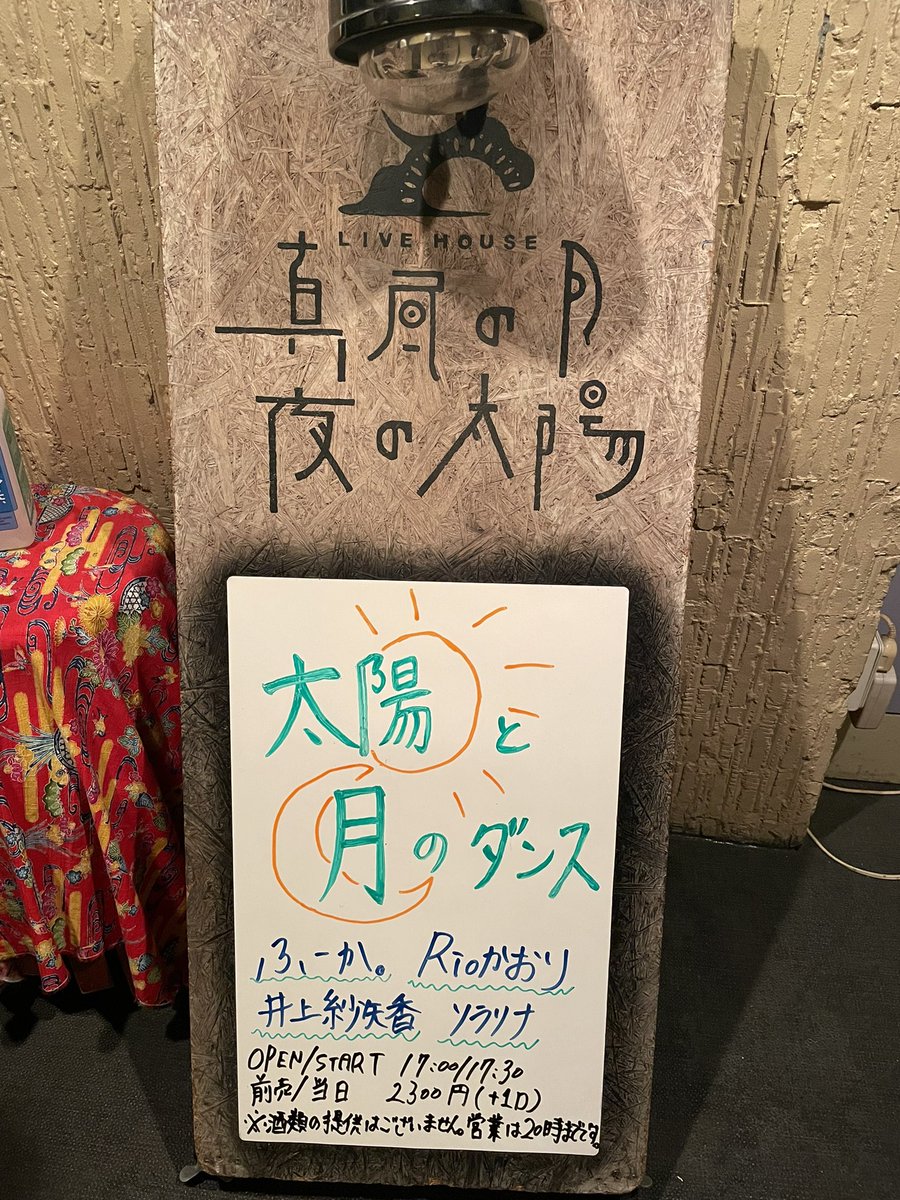 LIVE HOUSE
真昼の月
夜の太陽
太陽と
月のダンス
ふーか。 Rioかおり
井上紗矢香 ソラリナ
OPEN/START 17:00/17:30
前売/当日 2300円(+1D)
※酒類の提供はございません。営業は20時までです。